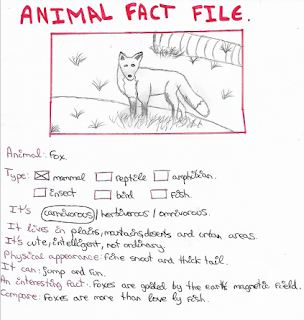 ANIMAL FACT FILE.
Animal: Fox.
Type: mammal reptile amphibian.
insect bird fish.
It's carnivorous / herbivorous / omnivorous.
It lives in plains, mountains, deserts and urban areas.
It's cute, intelligent, not ordinary.
Physical appearance: fine snout and thick tail.
It can: jump and run.
An interesting fact: Foxes are guided by the earth magnetic field.
Compare: Foxes are more than lovely fish.